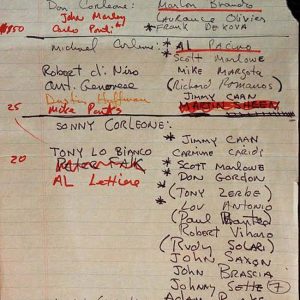 Don Corleone: Marlon Brando
John Marley Laurance Olivier
$150 Carlo Ponti * Frank DeKova
Michael Corleone: * AL PACINO
* Scott Marlowe
Robert di Niro Mike Margota
Aust. Genovese (Richard Romanos)
Dustin Hoffman Jimmy CAAN
25 Mike Parks MARTIN SHEEN
SONNY CORLEONE:
* Jimmy CAAN
TONY LO BIANCO CARMINE CARIDS
20 PETER FALK * Scott MARLOWE
AL Lettiere * DON GORDON
* (TONY ZERBE)
(Lou Antonio)
(Paul Banteo)
Robert Viharo
(RUDY SOLARI)
JOHN SAXON
JOHN BRASCIA
Johnny Sette 7
Adam